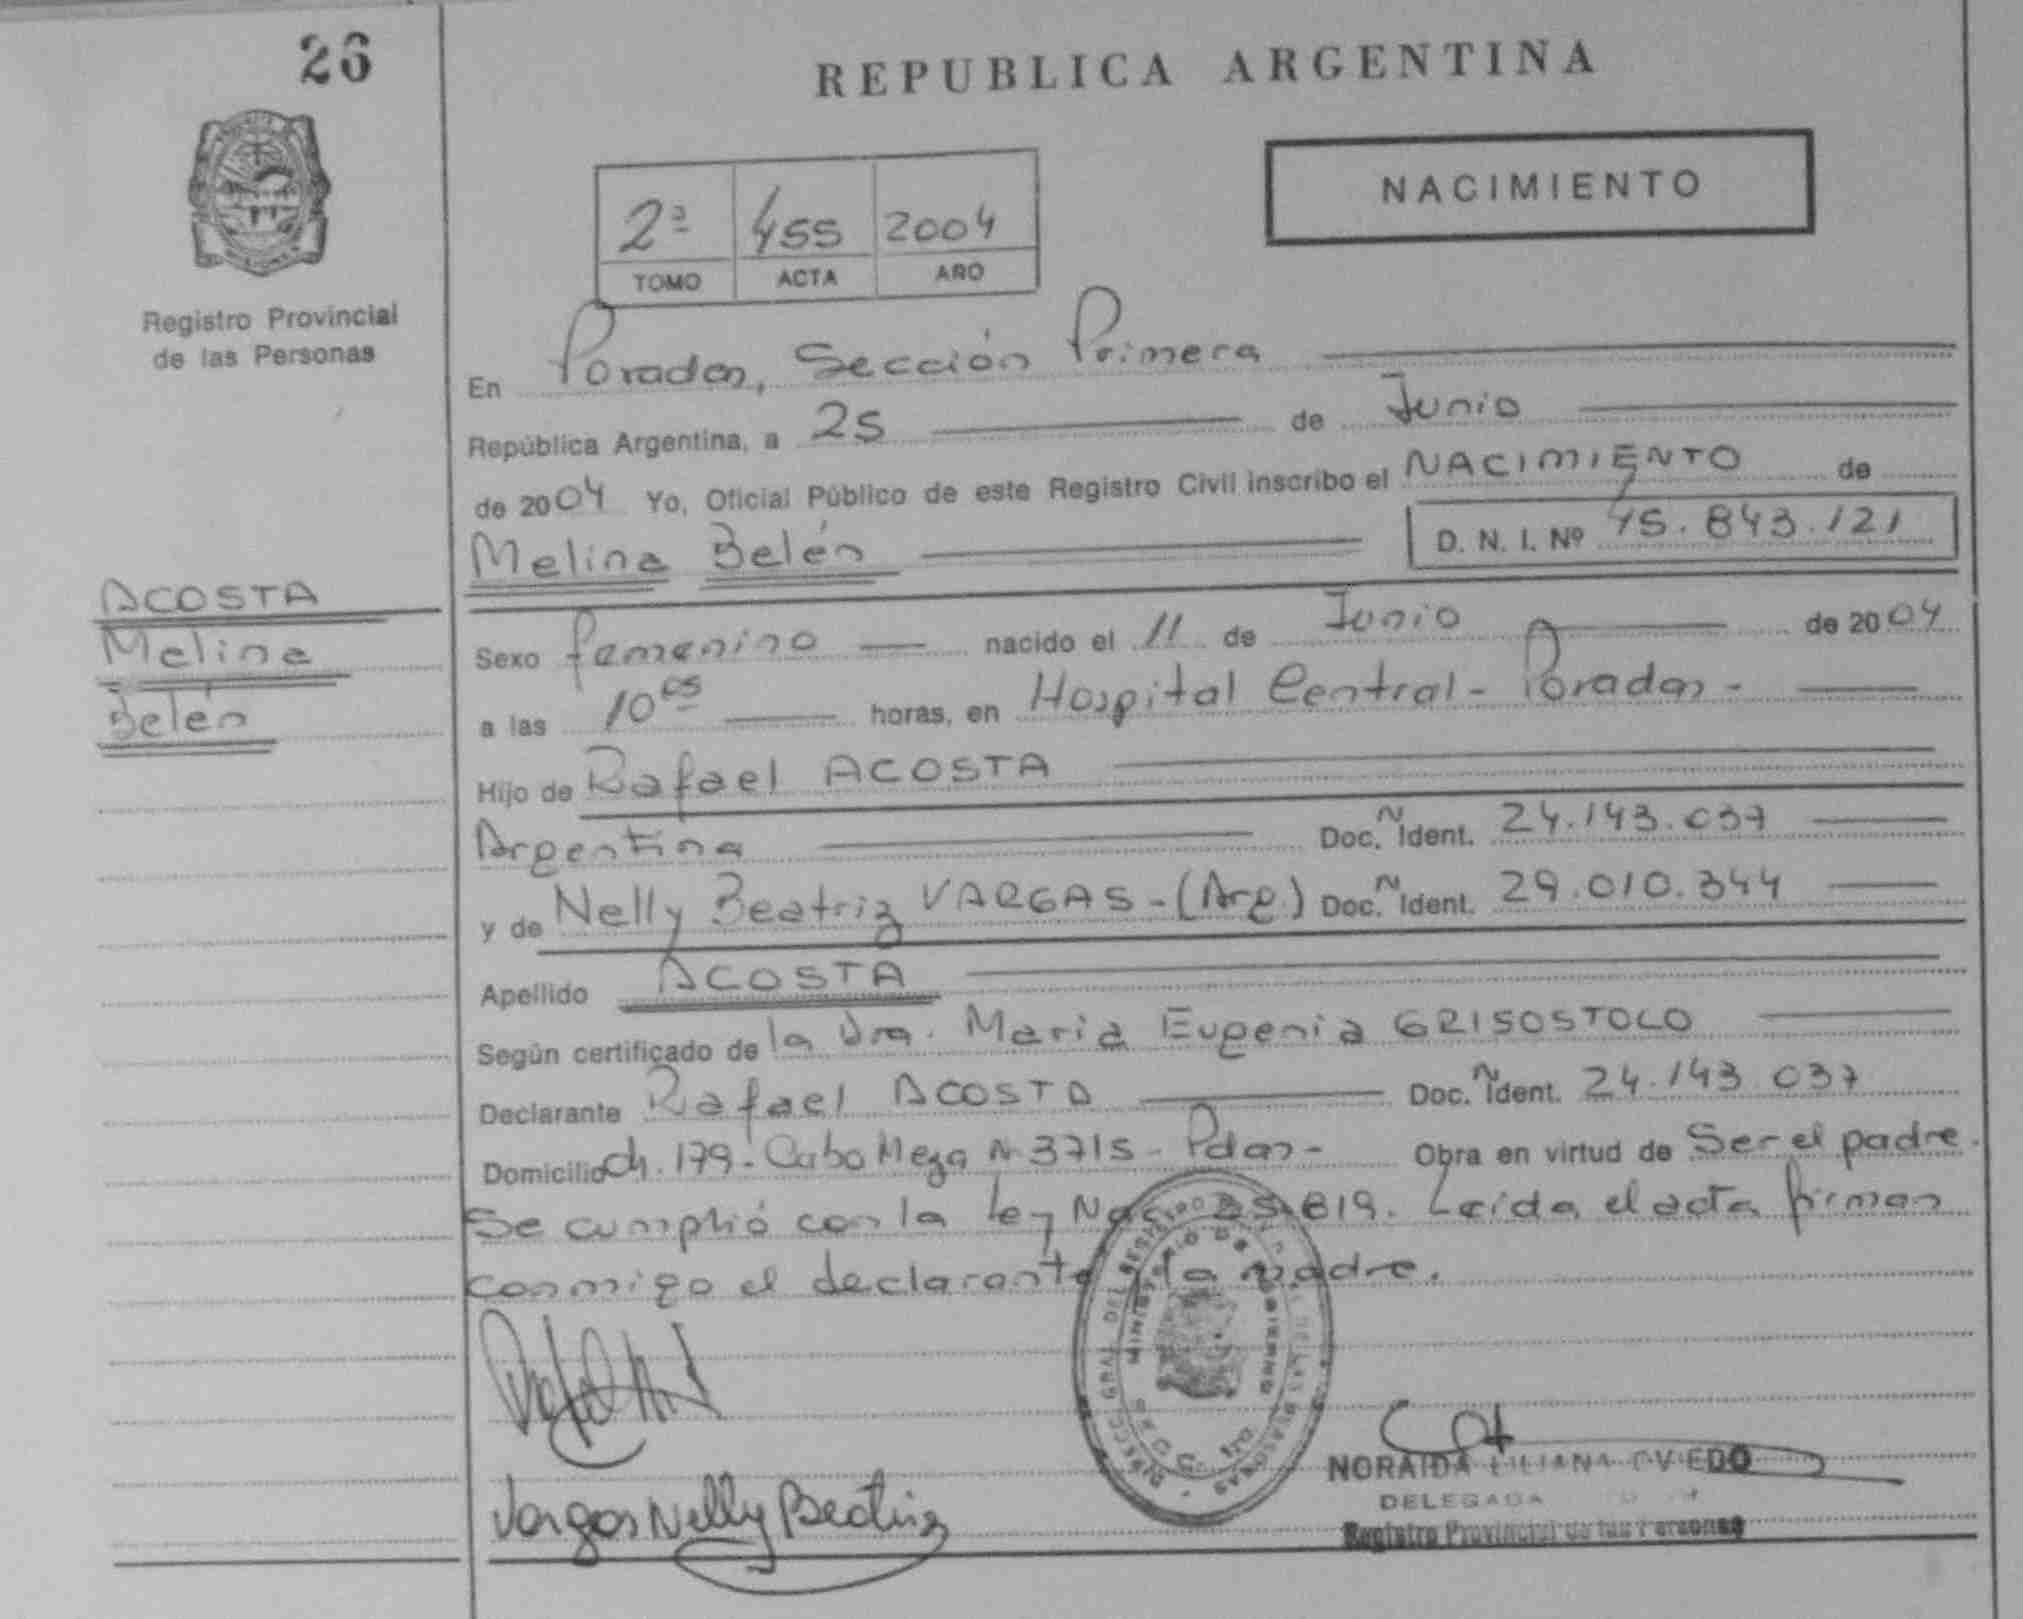 26
REPUBLICA ARGENTINA
NACIMIENTO
2ª 455 2004
TOMO ACTA AÑO
Registro Provincial
de las Personas
En Posadas, Sección Primera
República Argentina, a 25 de Junio
de 2004 Yo, Oficial Público de este Registro Civil inscribo el NACIMIENTO de
Melina Belén D. N. I. Nº 45.843.121
ACOSTA
Melina
Belén
Sexo femenino nacido el 11 de Junio de 2004
a las 10 05 horas, en Hospital Central - Posadas -
Hijo de Rafael ACOSTA
Argentina Doc. N Ident. 24.143.037
y de Nelly Beatriz VARGAS - (Arg.) Doc. N Ident. 29.010.344
Apellido ACOSTA
Según certificado de la Dra. Maria Eugenia GRISOSTOLO
Declarante Rafael ACOSTA Doc. N Ident. 24.143.037
Domicilio Ch. 179 - Cabo Meza N 3715 - Pdas - Obra en virtud de Ser el padre.
Se cumplió con la Ley Nac. 25.819. Leída el acta firman
conmigo el declarante y la madre.
MINISTERIO DE GOBIERNO
Vargas Nelly Beatriz
NORAIDA LILIANA OVIEDO
DELEGADA
Registro Provincial de las Personas